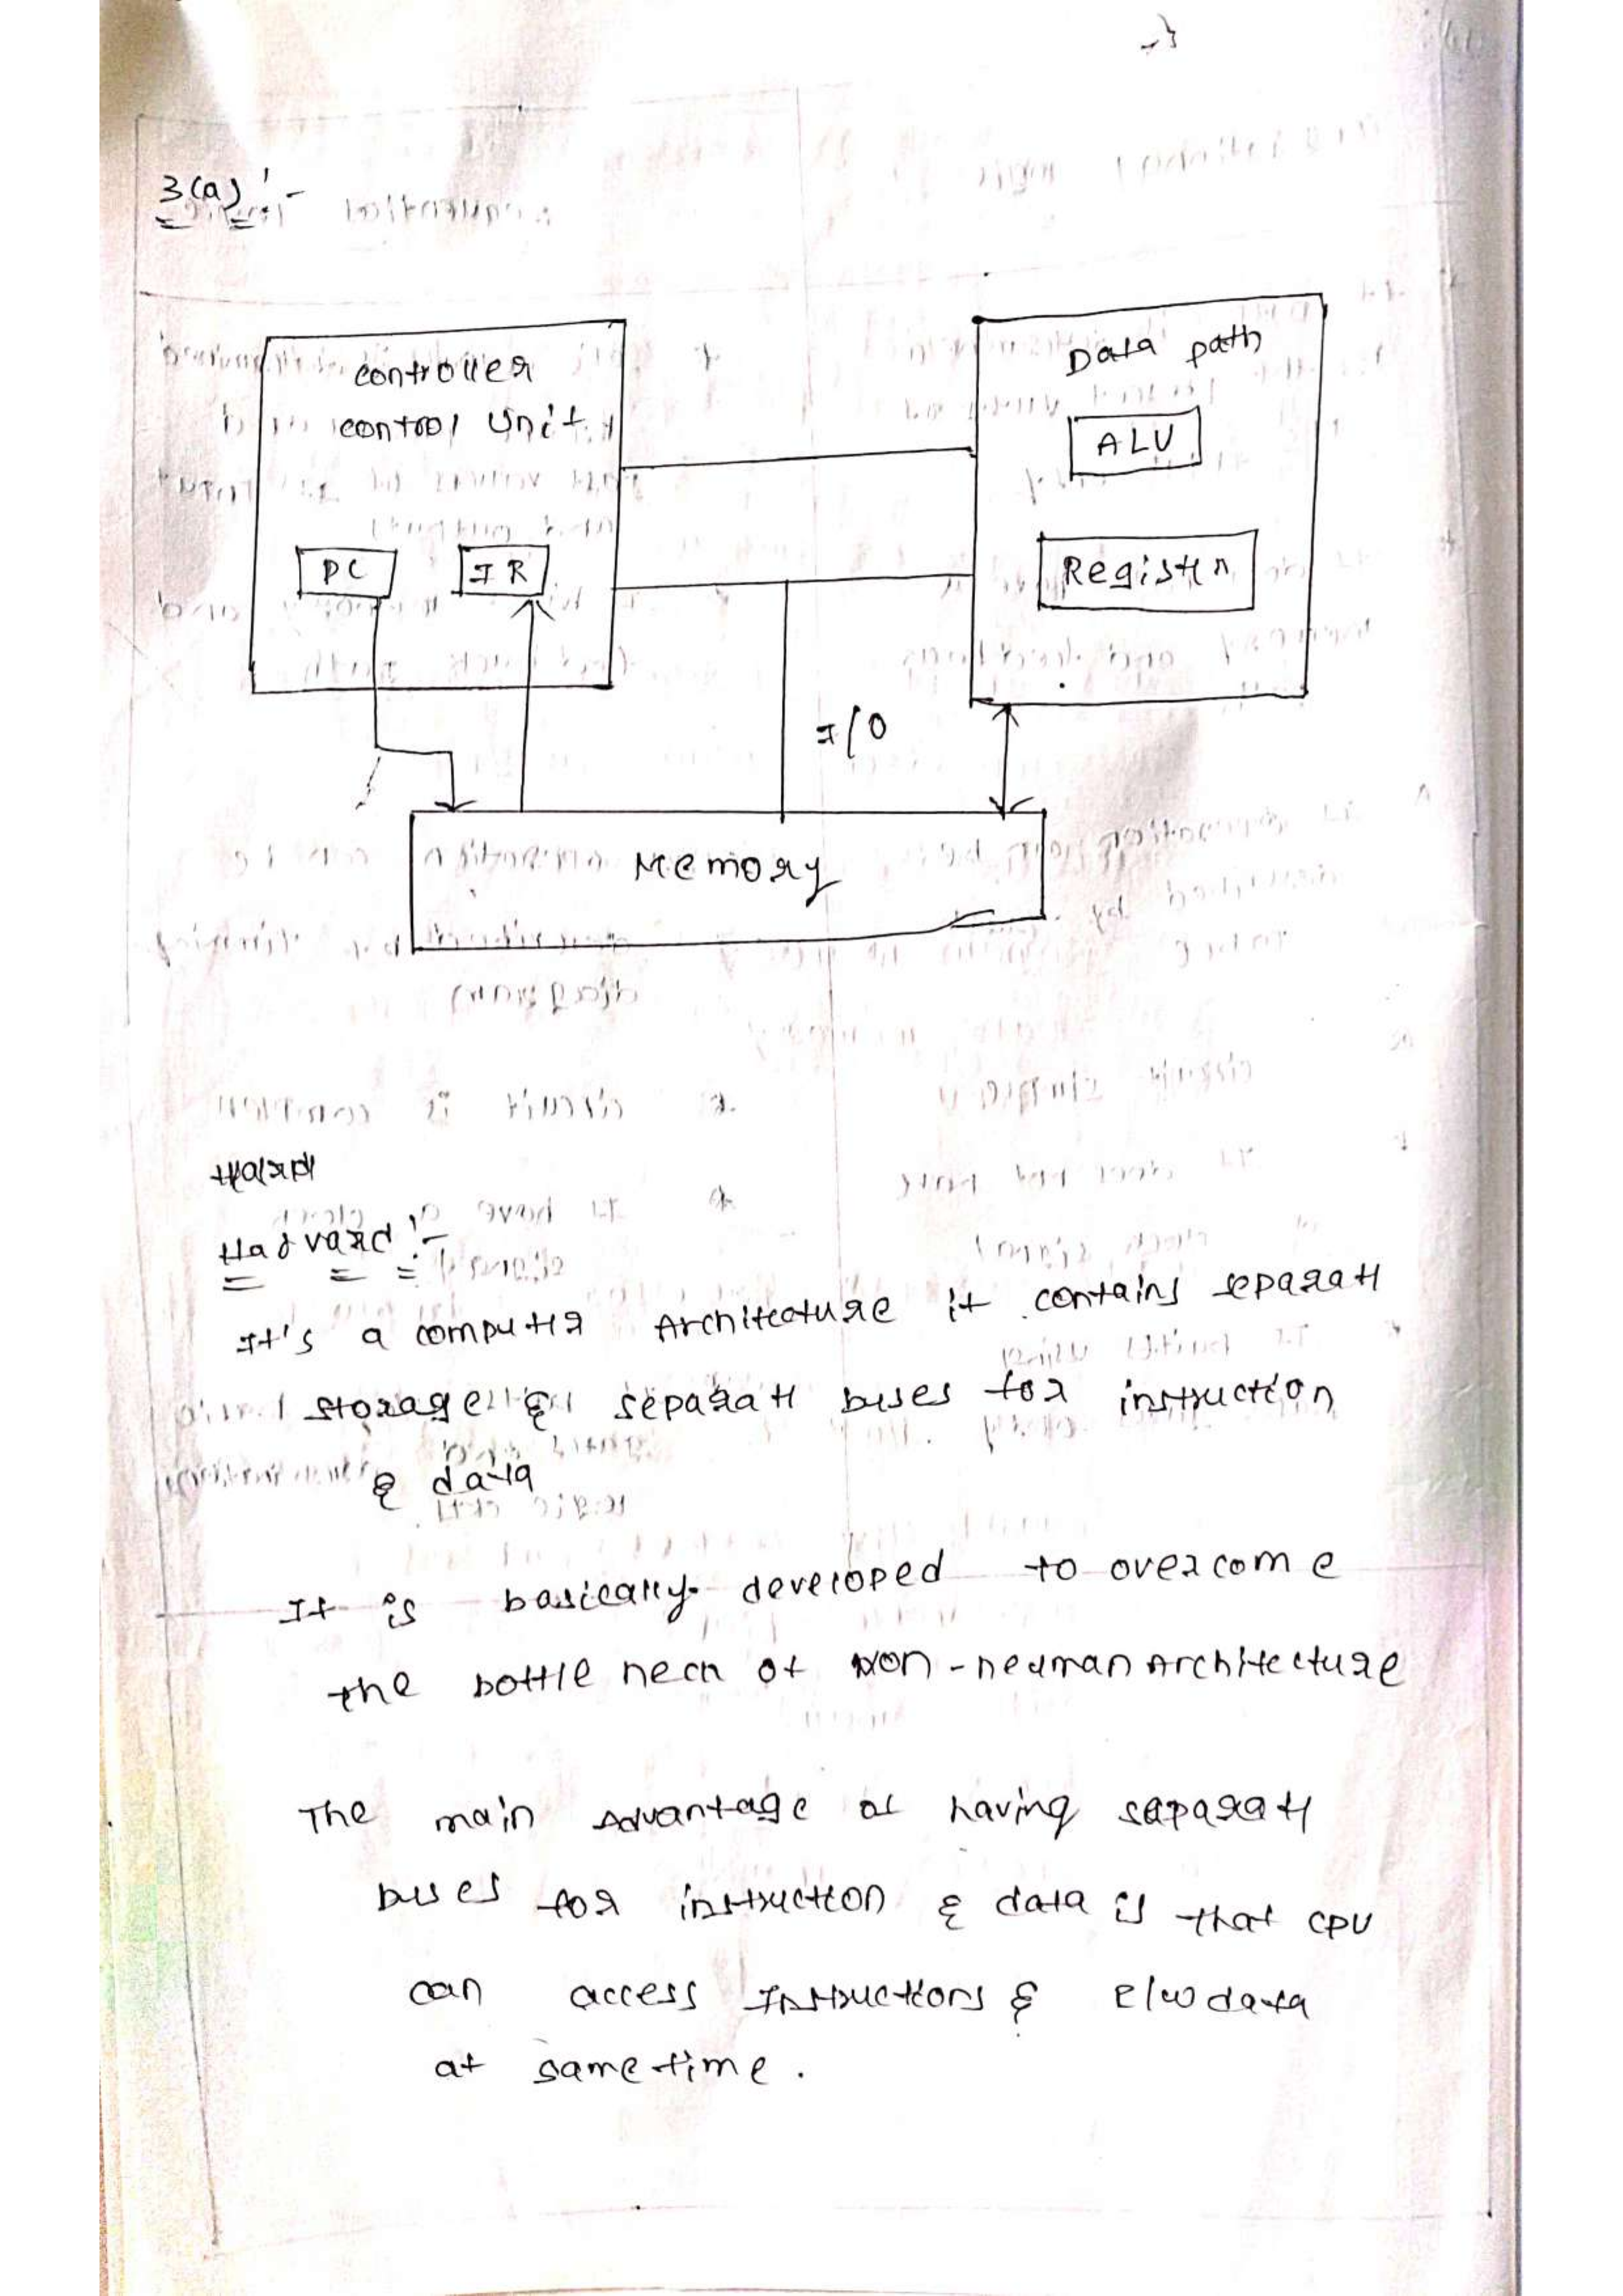 3(a) :-
controller
control Unit
Data path
ALU
PC
IR
Register
I/O
Memory
Harvard :-
It's a computer Architecture it contains separate
storage & separate buses for instruction
& data
It is basically developed to overcome
the bottle neck of Von-neuman Architecture
The main Advantage of having saparate
buses for instruction & data is that CPU
can access Instructions & R/W data
at same time.